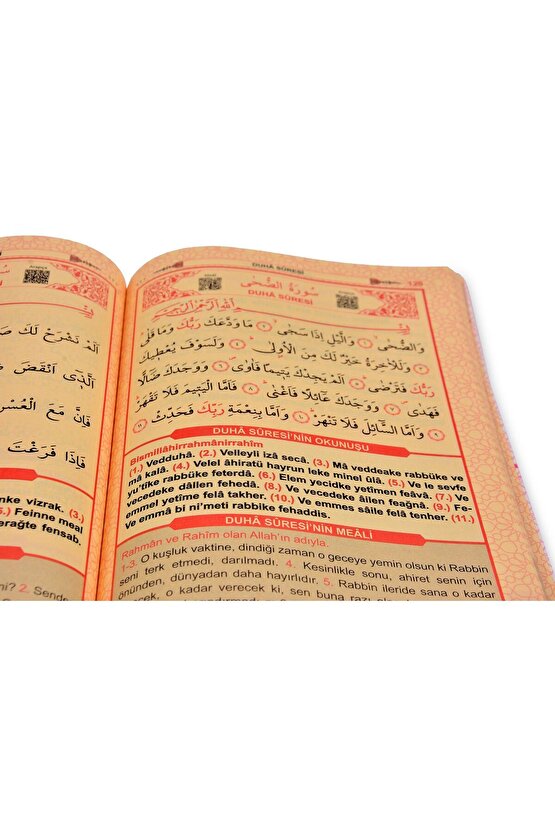 DUHÂ SÛRESİ
128
سُورَةُ الضُّحٰى
DUHÂ SÛRESİ
وَالضُّحٰى ﴿١﴾ وَالَّيْلِ اِذَا سَجٰى ﴿٢﴾ مَا وَدَّعَكَ رَبُّكَ وَمَا قَلٰى
﴿٣﴾ وَلَلْاٰخِرَةُ خَيْرٌ لَكَ مِنَ الْاُولٰى ﴿٤﴾ وَلَسَوْفَ يُعْطِيكَ
رَبُّكَ فَتَرْضٰى ﴿٥﴾ اَلَمْ يَجِدْكَ يَتِيمًا فَاٰوٰى ﴿٦﴾ وَوَجَدَكَ ضَالًّا
فَهَدٰى ﴿٧﴾ وَوَجَدَكَ عَائِلًا فَاَغْنٰى ﴿٨﴾ فَاَمَّا الْيَتِيمَ فَلَا تَقْهَرْ
﴿٩﴾ وَاَمَّا السَّائِلَ فَلَا تَنْهَرْ ﴿١٠﴾ وَاَمَّا بِنِعْمَةِ رَبِّكَ فَحَدِّثْ ﴿١١﴾
DUHÂ SÛRESİ'NİN OKUNUŞU
Bismillâhirrahmânirrahîm
(1.) Vedduhâ. (2.) Velleyli izâ secâ. (3.) Mâ veddeake rabbüke ve
mâ kalâ. (4.) Velel âhiratü hayrun leke minel ûlâ. (5.) Ve le sevfe
yu'tîke rabbüke feterdâ. (6.) Elem yecidke yetîmen feâvâ. (7.) Ve
vecedeke dâllen fehedâ. (8.) Ve vecedeke âilen feağnâ. (9.) Fe-
emmel yetîme felâ takher. (10.) Ve emmes sâile felâ tenher. (11.)
Ve emmâ bi ni'meti rabbike fehaddis.
DUHÂ SÛRESİ'NİN MEÂLİ
Rahmân ve Rahîm olan Allah'ın adıyla.
1-3. O kuşluk vaktine, dindiği zaman o geceye yemin olsun ki Rabbin
seni terk etmedi, darılmadı. 4. Kesinlikle sonu, ahiret senin için
önünden, dünyadan daha hayırlıdır. 5. Rabbin ileride sana o kadar
verecek, o kadar verecek ki, sen buna razı
اَلَمْ نَشْرَحْ لَكَ
الَّذِى اَنْقَضَ
فَاِنَّ مَعَ الْعُسْرِ
فَاِذَا فَرَغْتَ
nke vizrak. (3.)
5.) Feinne meal
erağte fensab.
mi? 2. Sende